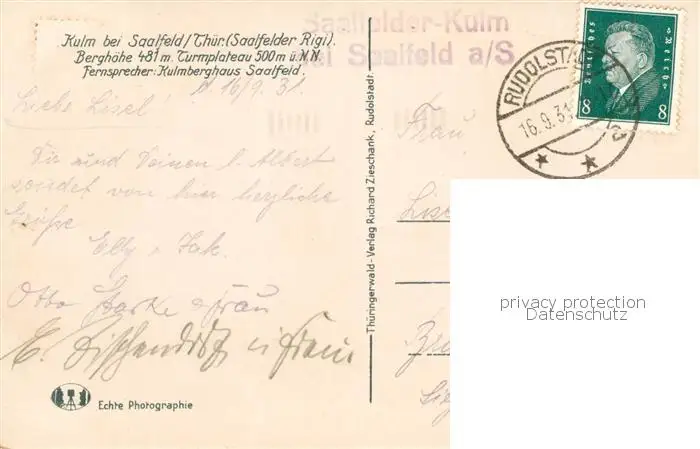 Kulm bei Saalfeld/Thür.(Saalfelder Rigi).
Berghöhe 481 m. Turmplateau 500 m ü.N.N.
Fernsprecher: Kulmberghaus Saalfeld.
Saalfelder-Kulm
bei Saalfeld a/S
RUDOLSTADT
16.9.31
Deutsches Reich
8 8
d 16/9.31.
Liebe Lisel!
Dir und Deinen l. Albert
sendet von hier herzliche
Grüße
Elly
Otto Frau
E. u Frau
Echte Photographie
Thüringerwald-Verlag Richard Zieschank, Rudolstadt.
Frau
privacy protection
Datenschutz